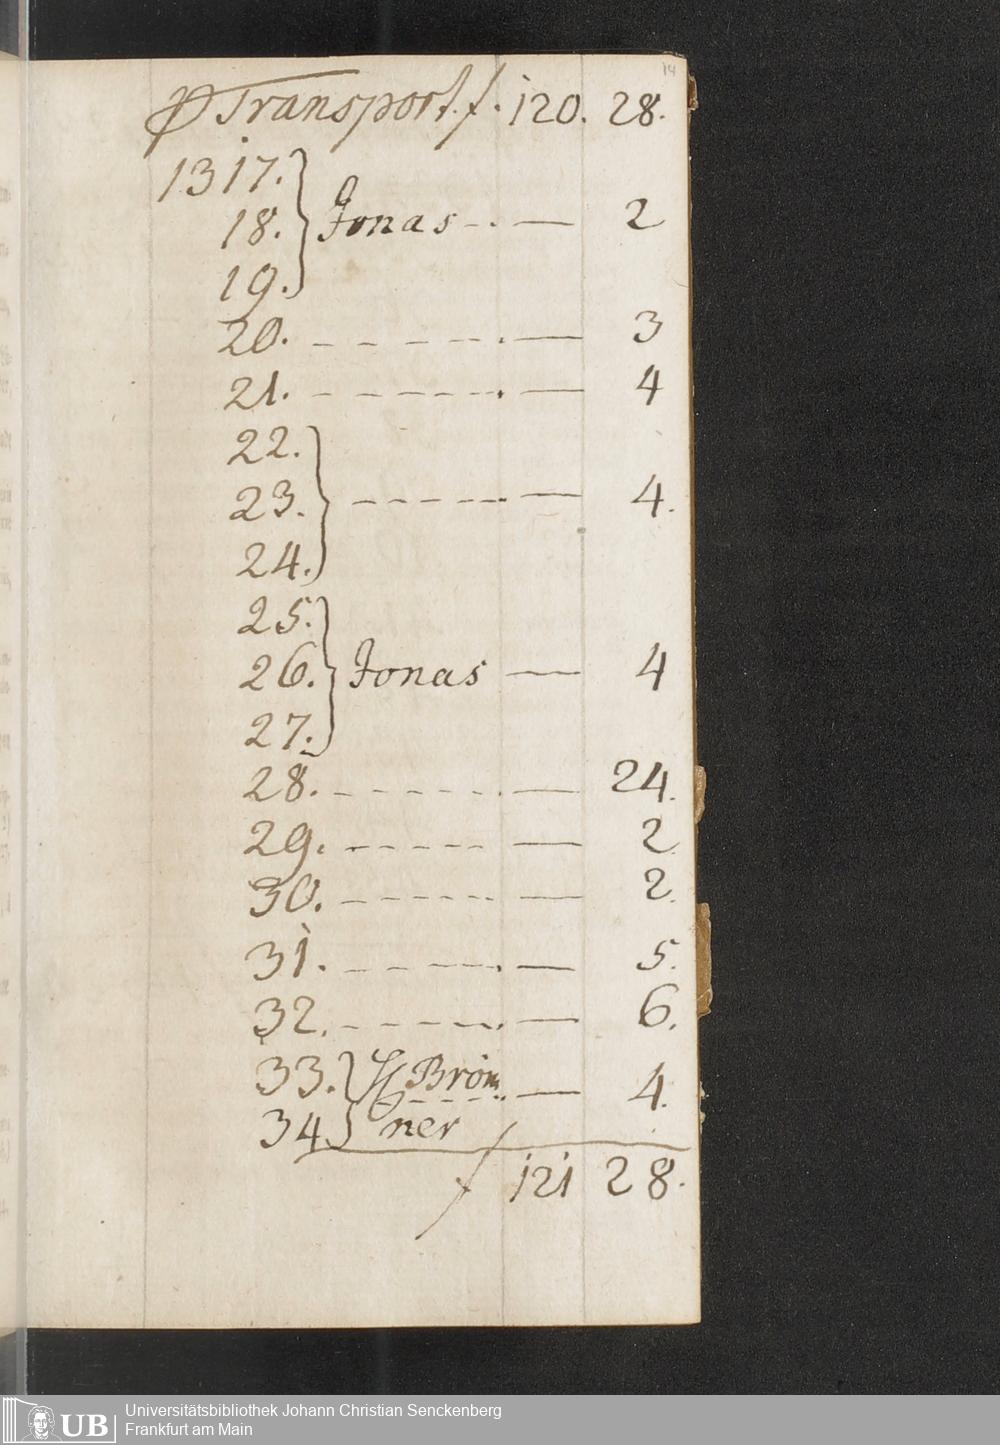 14
P Transport. f. 120. 28.
1317.
18. Jonas - . — 2
19.
20. - - - - - . — 3
21. - - - - - . — 4
22.
23. - - - - - . — 4.
24.
25.
26. Jonas — 4
27.
28. - - - - - . — 24.
29. - - - - - — 2.
30. - - - - - — 2.
31. - - - - - . — 5.
32. - - - - - . — 6.
33. H Bröm - - - - . — 4.
34. ner
f 121 28.
UB
Universitätsbibliothek Johann Christian Senckenberg
Frankfurt am Main